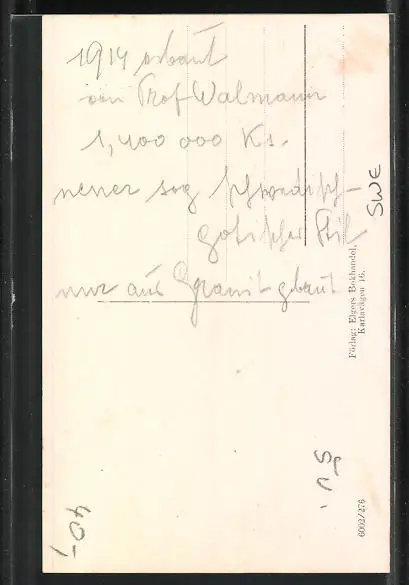 1914 erbaut
von Prof Walmann
1,400 000 Ks.
neuer sog schwedisch-
gotischer Stil
nur aus Granit gebaut
SWE
Förlag: Elgers Bokhandel,
Karlavägen 16.
6002/276
40,-